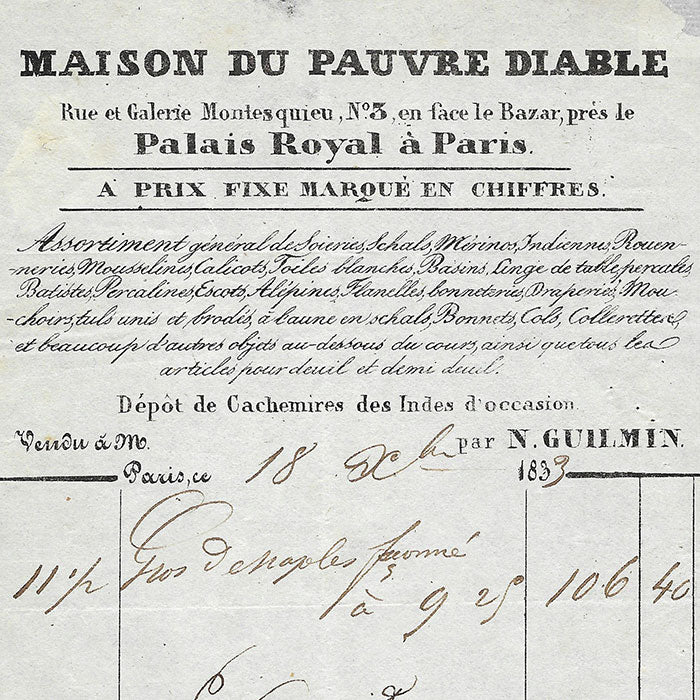 MAISON DU PAUVRE DIABLE
Rue et Galerie Montesquieu, N°. 3, en face le Bazar, près le
Palais Royal à Paris.
A PRIX FIXE MARQUÉ EN CHIFFRES.
Assortiment général de Soieries, Schals, Mérinos, Indiennes, Rouen-
-neries, Mousselines, Calicots, Toiles blanches, Basins, Linge de table, percales,
Batistes, Percalines, Escots, Alépines, Flanelles, bonneteries, Draperies, Mou-
-choirs, tuls unis et brodés, à l'aune en schals, Bonnets, Cols, Collerettes &
et beaucoup d'autres objets au-dessous du cours, ainsi que tous les
articles pour deuil et demi deuil.
Dépôt de Cachemires des Indes d'occasion
Vendu à M. par N. GUILMIN.
Paris, ce 18 Xbre 1833
11 1/2 Gros de naples façonné
à 9 25 106 40